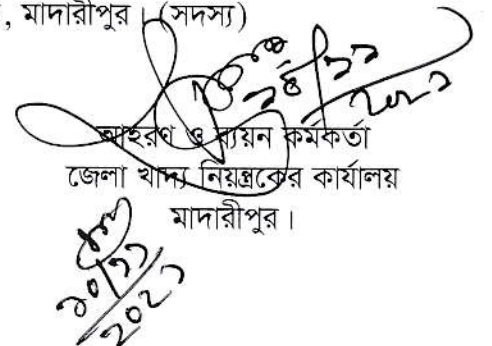 , মাদারীপুর। (সদস্য)
আহরণ ও ব্যয়ন কর্মকর্তা
জেলা খাদ্য নিয়ন্ত্রকের কার্যালয়
মাদারীপুর।
১০/১১
২০২১